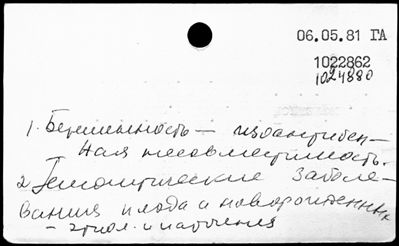 06.05.81 ГА
1022862
1024880
1. Беременность — изоантиген-
ная несовместимость.
2. Гемолитические заболе-
вания плода и новорожденных
- этиол. и патогения